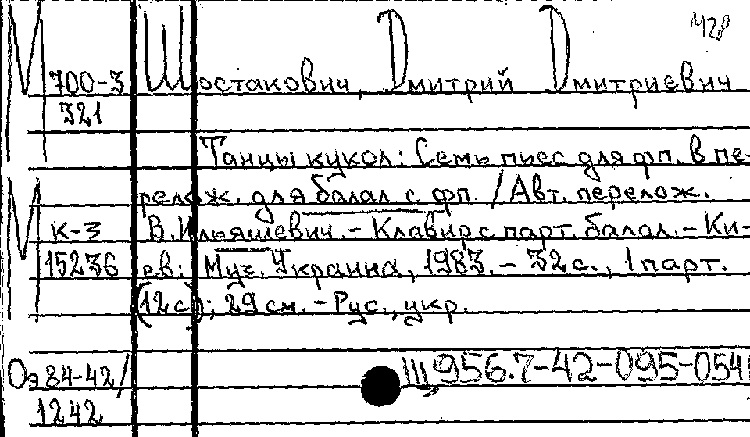 М 700-3 321
Шостакович, Дмитрий Дмитриевич 428
Танцы кукол: Семь пьес для фп. в пе-
релож. для балал с фп. / Авт. перелож.
М к-3 В. Ильяшевич. - Клавир с парт. балал. - Ки-
15236 ев: Муз. Украина, 1983. - 32 с., 1 парт.
(12 с); 29 см. - Рус., укр.
Оэ 84-42/ 1242
Ш956.7-42-095-054